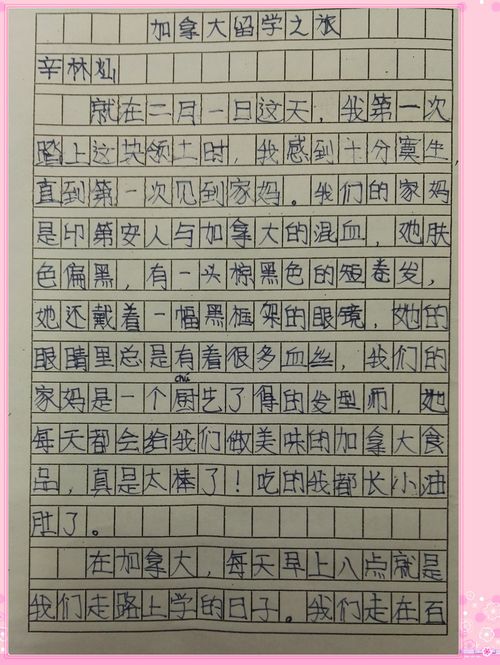 加拿大留学之旅
辛林灿
就在二月一日这天，我第一次
踏上这块领土时，我感到十分寞生，
直到第一次见到家妈。我们的家妈
是印第安人与加拿大的混血，她肤
色偏黑，有一头棕黑色的短卷发，
她还戴着一幅黑框架的眼镜，她的
眼睛里总是有着很多血丝，我们的
chú
家妈是一个厨艺了得的发型师，她
每天都会给我们做美味的加拿大食
品，真是太棒了！吃的我都长小油
肚了。
在加拿大，每天早上八点就是
我们走路上学的日子。我们走在百